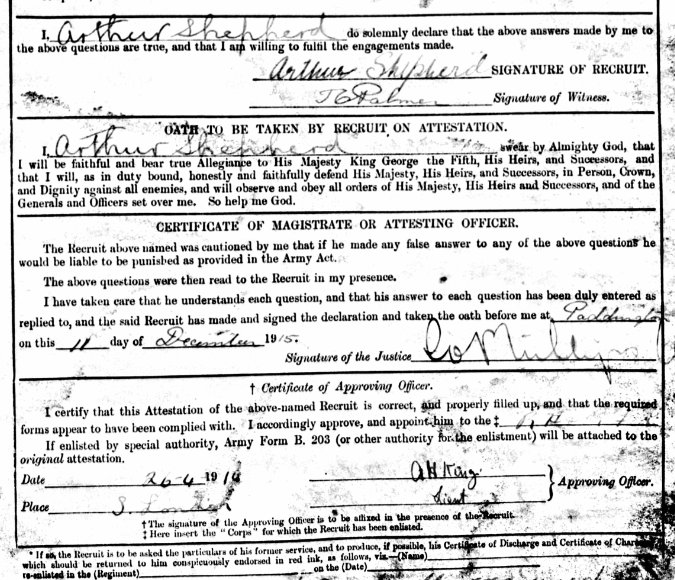 I, Arthur Shepherd do solemnly declare that the above answers made by me to
the above questions are true, and that I am willing to fulfil the engagements made.
Arthur Shepherd SIGNATURE OF RECRUIT.
Palmer Signature of Witness.
OATH TO BE TAKEN BY RECRUIT ON ATTESTATION.
I, Arthur Shepherd swear by Almighty God, that
I will be faithful and bear true Allegiance to His Majesty King George the Fifth, His Heirs, and Successors, and
that I will, as in duty bound, honestly and faithfully defend His Majesty, His Heirs, and Successors, in Person, Crown,
and Dignity against all enemies, and will observe and obey all orders of His Majesty, His Heirs and Successors, and of the
Generals and Officers set over me. So help me God.
CERTIFICATE OF MAGISTRATE OR ATTESTING OFFICER.
The Recruit above named was cautioned by me that if he made any false answer to any of the above questions he
would be liable to be punished as provided in the Army Act.
The above questions were then read to the Recruit in my presence.
I have taken care that he understands each question, and that his answer to each question has been duly entered as
replied to, and the said Recruit has made and signed the declaration and taken the oath before me at Paddington
on this 11 day of December 1915.
Signature of the Justice
† Certificate of Approving Officer.
I certify that this Attestation of the above-named Recruit is correct, and properly filled up, and that the required
forms appear to have been complied with. I accordingly approve, and appoint him to the ‡
If enlisted by special authority, Army Form B. 203 (or other authority for the enlistment) will be attached to the
original attestation.
Date 26-4 1916 A H King
Lieut } Approving Officer.
Place S London
† The signature of the Approving Officer is to be affixed in the presence of the Recruit.
‡ Here insert the "Corps" for which the Recruit has been enlisted.
* If so, the Recruit is to be asked the particulars of his former service, and to produce, if possible, his Certificate of Discharge and Certificate of
which should be returned to him conspicuously endorsed in red ink, as follows, viz.—(Name)
re-enlisted in the (Regiment) on the (Date)